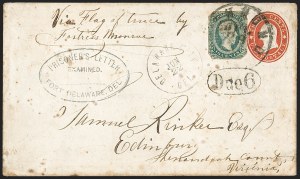 Via Flag of truce by
Fortress Monroe
PRISONER'S LETTER
EXAMINED.
FORT DELAWARE, DEL.
DELAWARE
Due 6
Samuel Rinker Esq.
Edinburg
Shenandoah County
Virginia